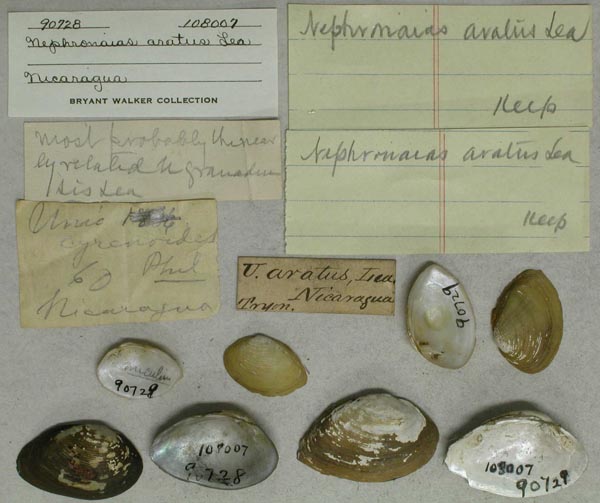 90728 108007
Nephronaias aratus Lea
Nicaragua
BRYANT WALKER COLLECTION
Nephronaias aratus Lea
Keep
Nephronaias aratus Lea
Keep
most probably this near
ly related U granaden
sis Lea
Unio
cyrenoides
60 Phil
Nicaragua
U. aratus, Lea.
Nicaragua
Tryon.
90729
90729
108007
90728
108007
90729